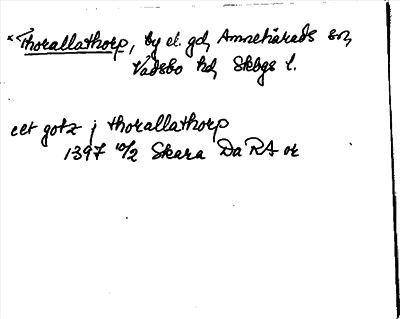 *Thorallathorp, by el. gd, Amnehärads sn,
Vadsbo hd, Skbgs l.
eet gotz j thorallathorp
1397 10/2 Skara Da RA or